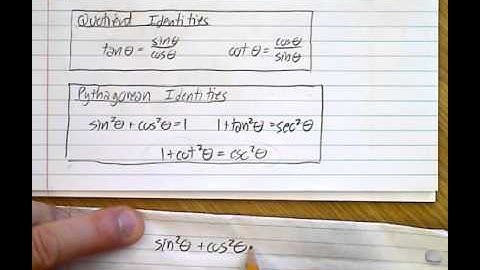 Quotient Identities
tanθ = sinθ/cosθ cotθ = cosθ/sinθ
Pythagorean Identities
sin²θ + cos²θ = 1 1 + tan²θ = sec²θ
1 + cot²θ = csc²θ
sin²θ + cos²θ